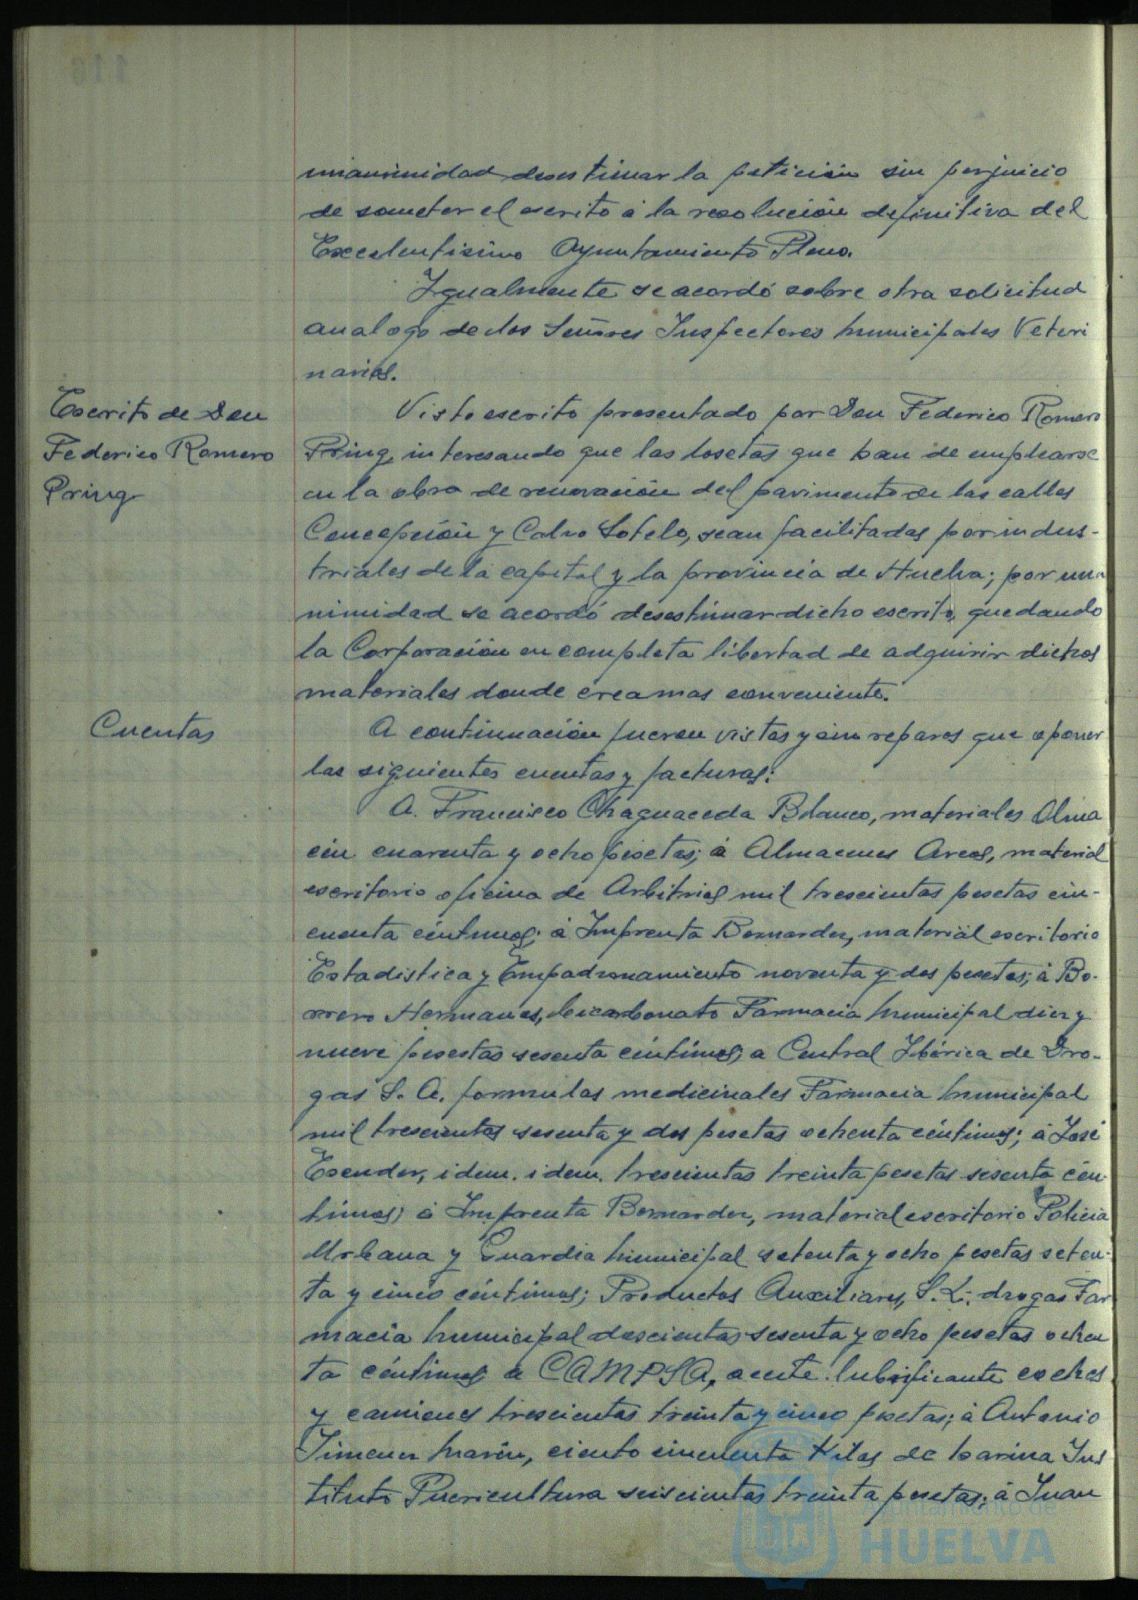 unanimidad desestimar la petición sin perjuicio
de someter el escrito á la resolución definitiva del
Excelentisimo Ayuntamiento Pleno.
Igualmente se acordó sobre otra solicitud
analogo de los Señores Inspectores Municipales Veteri
narios.
Escrito de Don
Federico Romero
Pring
Visto escrito presentado por Don Federico Romero
Pring, interesando que las losetas que han de emplearse
en la obra de renovación del pavimento de las calles
Concepción y Calvo Sotelo, sean facilitadas por indus-
triales de la capital y la provincia de Huelva; por una
nimidad se acordó desestimar dicho escrito, quedando
la Corporación en completa libertad de adquirir dichos
materiales donde crea mas conveniente.
Cuentas
A continuación fueron vistas y sin reparos que oponer
las siguientes cuentas y facturas:
A. Francisco Chaguaceda Blanco, materiales Alma
cén cuarenta y ocho pesetas; á Almacenes Arcos, material
escritorio oficina de Arbitrios mil trescientas pesetas cin-
cuenta céntimos; á Imprenta Bernardez, material escritorio
Estadistica y Empadronamiento noventa y dos pesetas; á Bo-
rrero Hermanos, bicarbonato Farmacia Municipal diez y
nueve pesestas sesenta céntimos; a Central Ibérica de Dro-
gas S. A. formulas medicinales Farmacia Municipal
mil trescientas sesenta y dos pesetas ochenta céntimos; á José
Escuder, idem. idem. trescientas treinta pesetas sesenta cén-
timos; á Imprenta Bernardez, material escritorio Policia
Urbana y Guardia Municipal setenta y ocho pesetas seten-
ta y cinco céntimos; Productos Auxiliares, S. L. drogas Far
macia Municipal doscientas sesenta y ocho pesetas ochen
ta céntimos a CAMPSA, aceite lubrificante coches
y camiones trescientas treinta y cinco pesetas; á Antonio
Jimenez Marín, ciento cincuenta Kilos de harina Ins
tituto Puericultura seiscientas treinta pesetas; á Juan
Ayuntamiento de
HUELVA